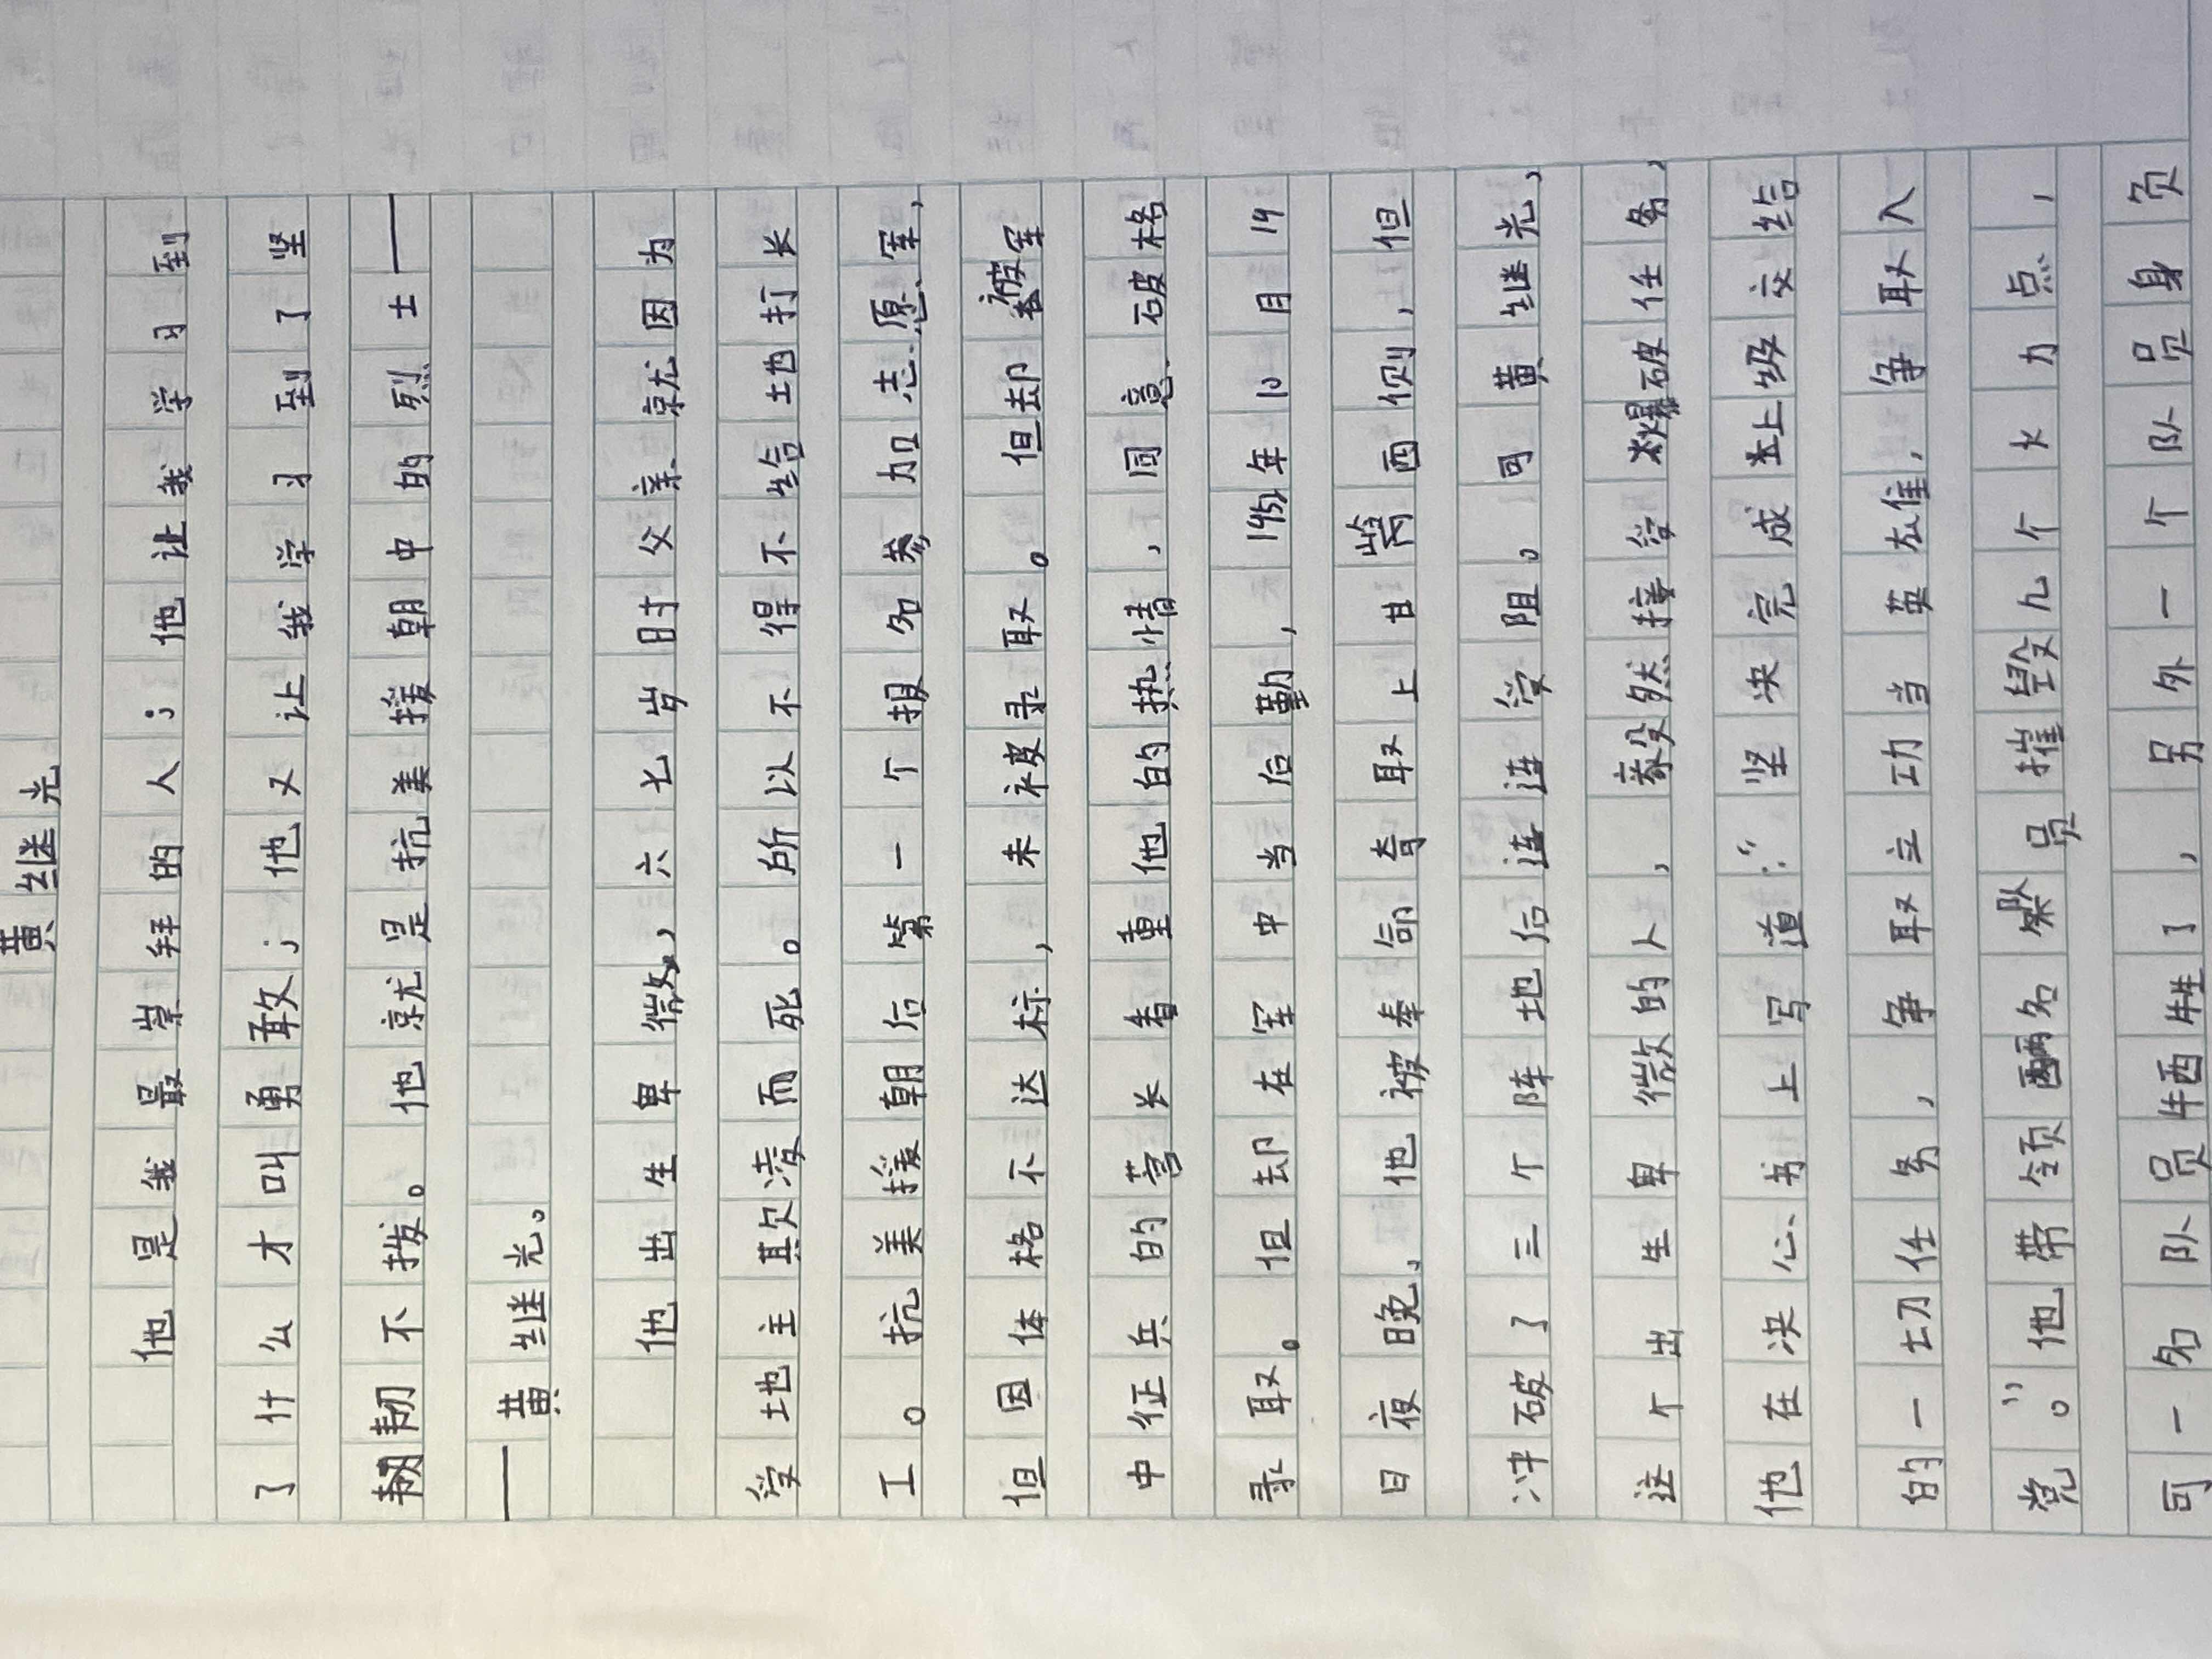 黄继光
他是我最崇拜的人；他让我学习到
了什么才叫勇敢；他又让我学习到了坚
韧不拔。他就是抗美援朝中的烈士——
——黄继光。
他出生卑微，六七岁时父亲就因为
受地主欺凌而死。所以不得不给地主打长
工。抗美援朝后第一个报名参加志愿军，
但因体格不达标，未被录取。但却被军
中征兵的营长看重他的热情，同意破格
录取。但却在军中当后勤，1952年10月19
日夜晚，他被奉命夺取上甘岭西侧，但
冲破了三个阵地后连连受阻。可黄继光，
这个出生卑微的人，毅然接受爆破任务，
他在决心书上写道：“坚决完成上级交给
的一切任务，争取立功当英雄，争取入
党。”他带领两名队员摧毁几个火力点，
可一名队员牺牲了，另外一个队员身负